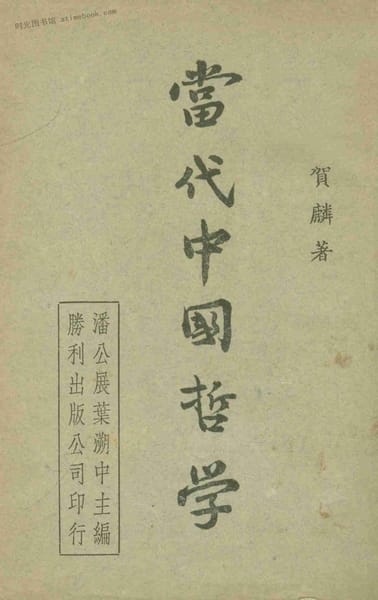 时光图书馆 atimebook.com
賀麟著
當代中國哲学
潘公展葉溯中主編
勝利出版公司印行